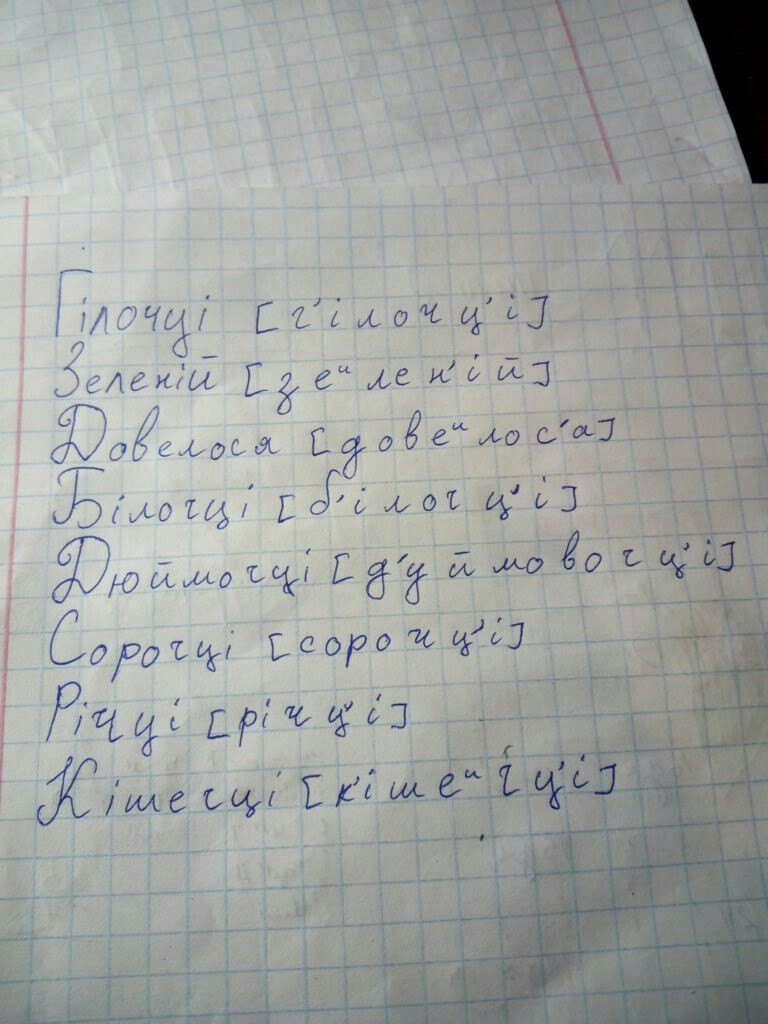 Гілочці [г'ілочц'і]
Зеленій [зеᶦленій]
Довелося [довеᶦлос'а]
Білочці [б'ілочц'і]
Дюймочці [д'уймовочц'і]
Сорочці [сорочц'і]
Річці [річц'і]
Кішечці [к'ішеᶦчц'і]